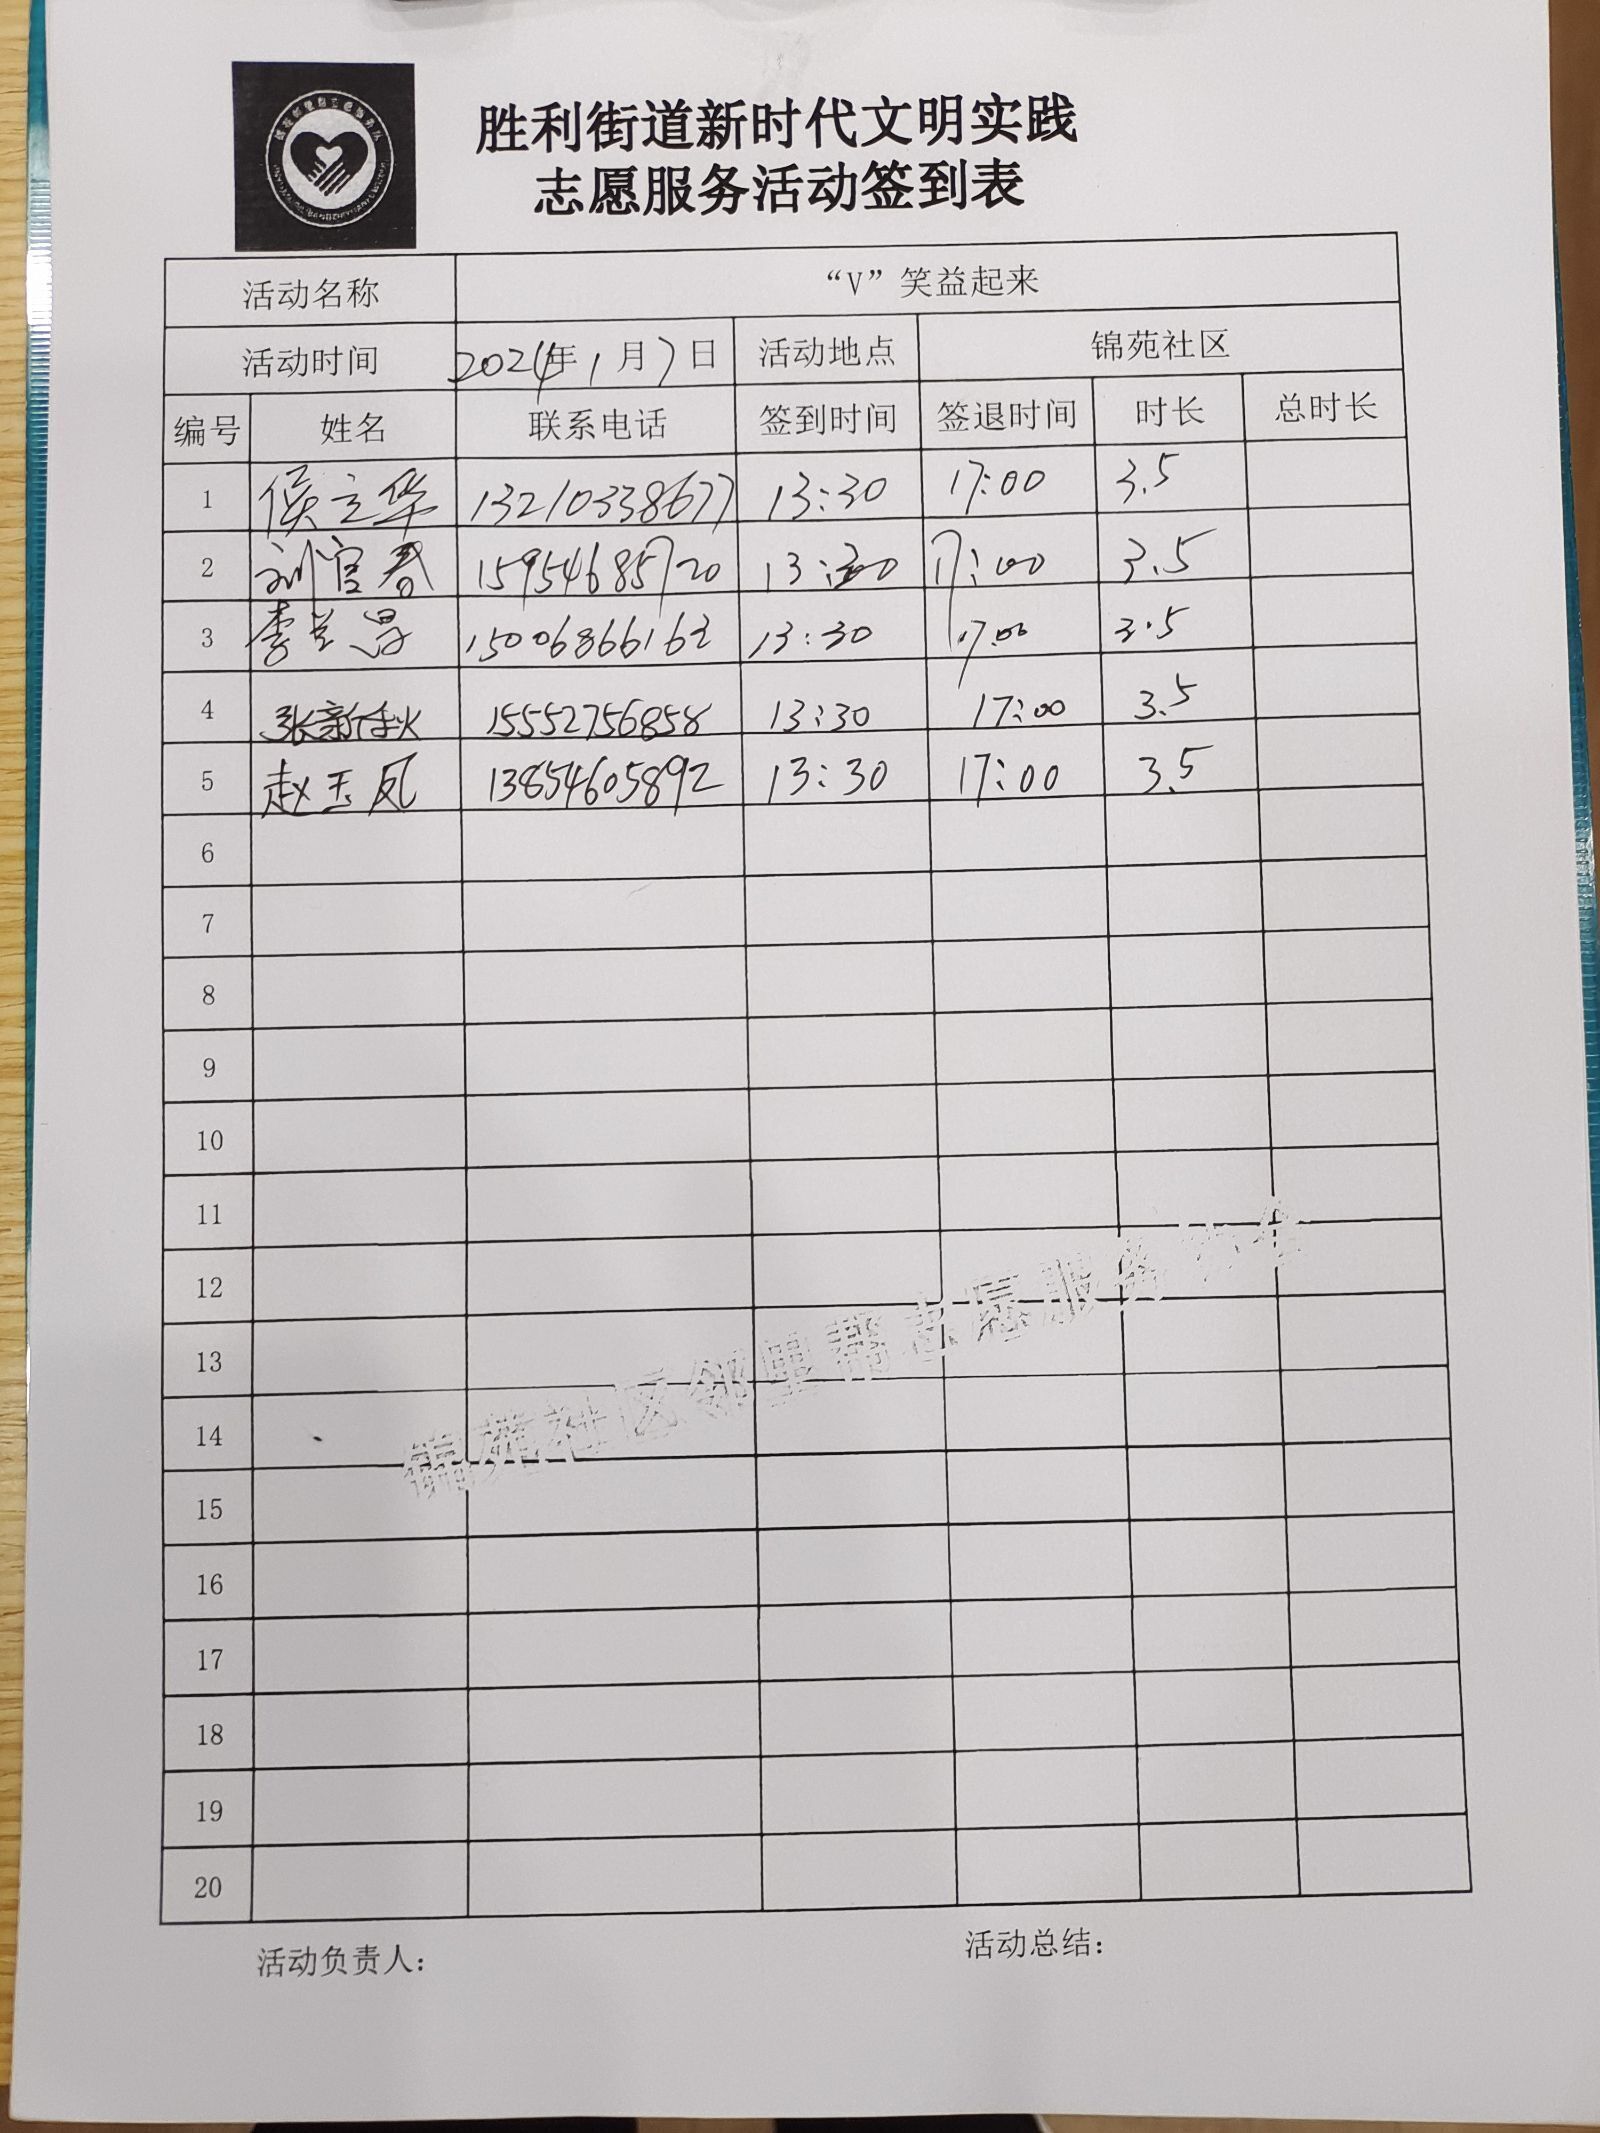 胜利街道新时代文明实践
志愿服务活动签到表
活动名称 “V”笑益起来
活动时间 2024年1月7日 活动地点 锦苑社区
编号 姓名 联系电话 签到时间 签退时间 时长 总时长
1 侯立华 13210338677 13:30 17:00 3.5
2 刘官春 15954685720 13:30 17:00 3.5
3 李兰 15006866162 13:30 17:00 3.5
4 张新秋 15552756858 13:30 17:00 3.5
5 赵玉凤 13854605892 13:30 17:00 3.5
6
7
8
9
10
11
12
13
14
15
16
17
18
19
20
锦苑社区邻里帮志愿服务协会
活动负责人： 活动总结：